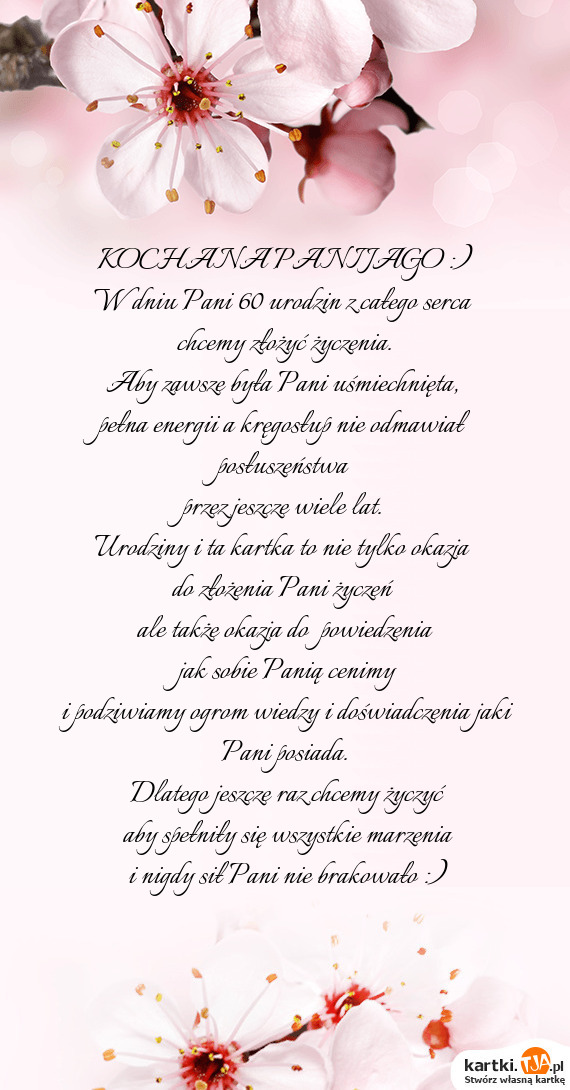 KOCHANA PANI JAGO :)
W dniu Pani 60 urodzin z całego serca
chcemy złożyć życzenia.
Aby zawsze była Pani uśmiechnięta,
pełna energii a kręgosłup nie odmawiał
posłuszeństwa
przez jeszcze wiele lat.
Urodziny i ta kartka to nie tylko okazja
do złożenia Pani życzeń
ale także okazja do powiedzenia
jak sobie Panią cenimy
i podziwiamy ogrom wiedzy i doświadczenia jaki
Pani posiada.
Dlatego jeszcze raz chcemy życzyć
aby spełniły się wszystkie marzenia
i nigdy sił Pani nie brakowało :)
kartki.TJA.pl
Stwórz własną kartkę